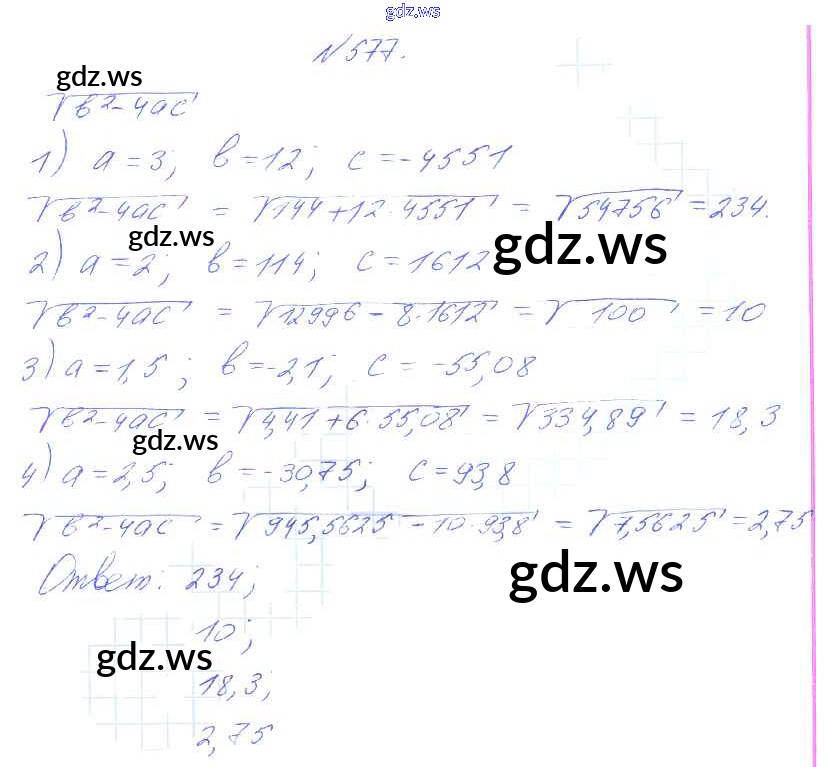 gdz.ws
№577.
gdz.ws
√(в²-4ac)
1) a=3; в=12; c=-4551
√(в²-4ac) = √(144+12·4551) = √54756 = 234.
gdz.ws
gdz.ws
2) a=2; в=114; c=1612
√(в²-4ac) = √(12996-8·1612) = √100 = 10
3) a=1,5; в=-2,1; c=-55,08
√(в²-4ac) = √(4,41+6·55,08) = √334,89 = 18,3
gdz.ws
4) a=2,5; в=-30,75; c=93,8
√(в²-4ac) = √(945,5625-10·93,8) = √7,5625 = 2,75
Ответ: 234;
gdz.ws
10;
gdz.ws
18,3;
2,75